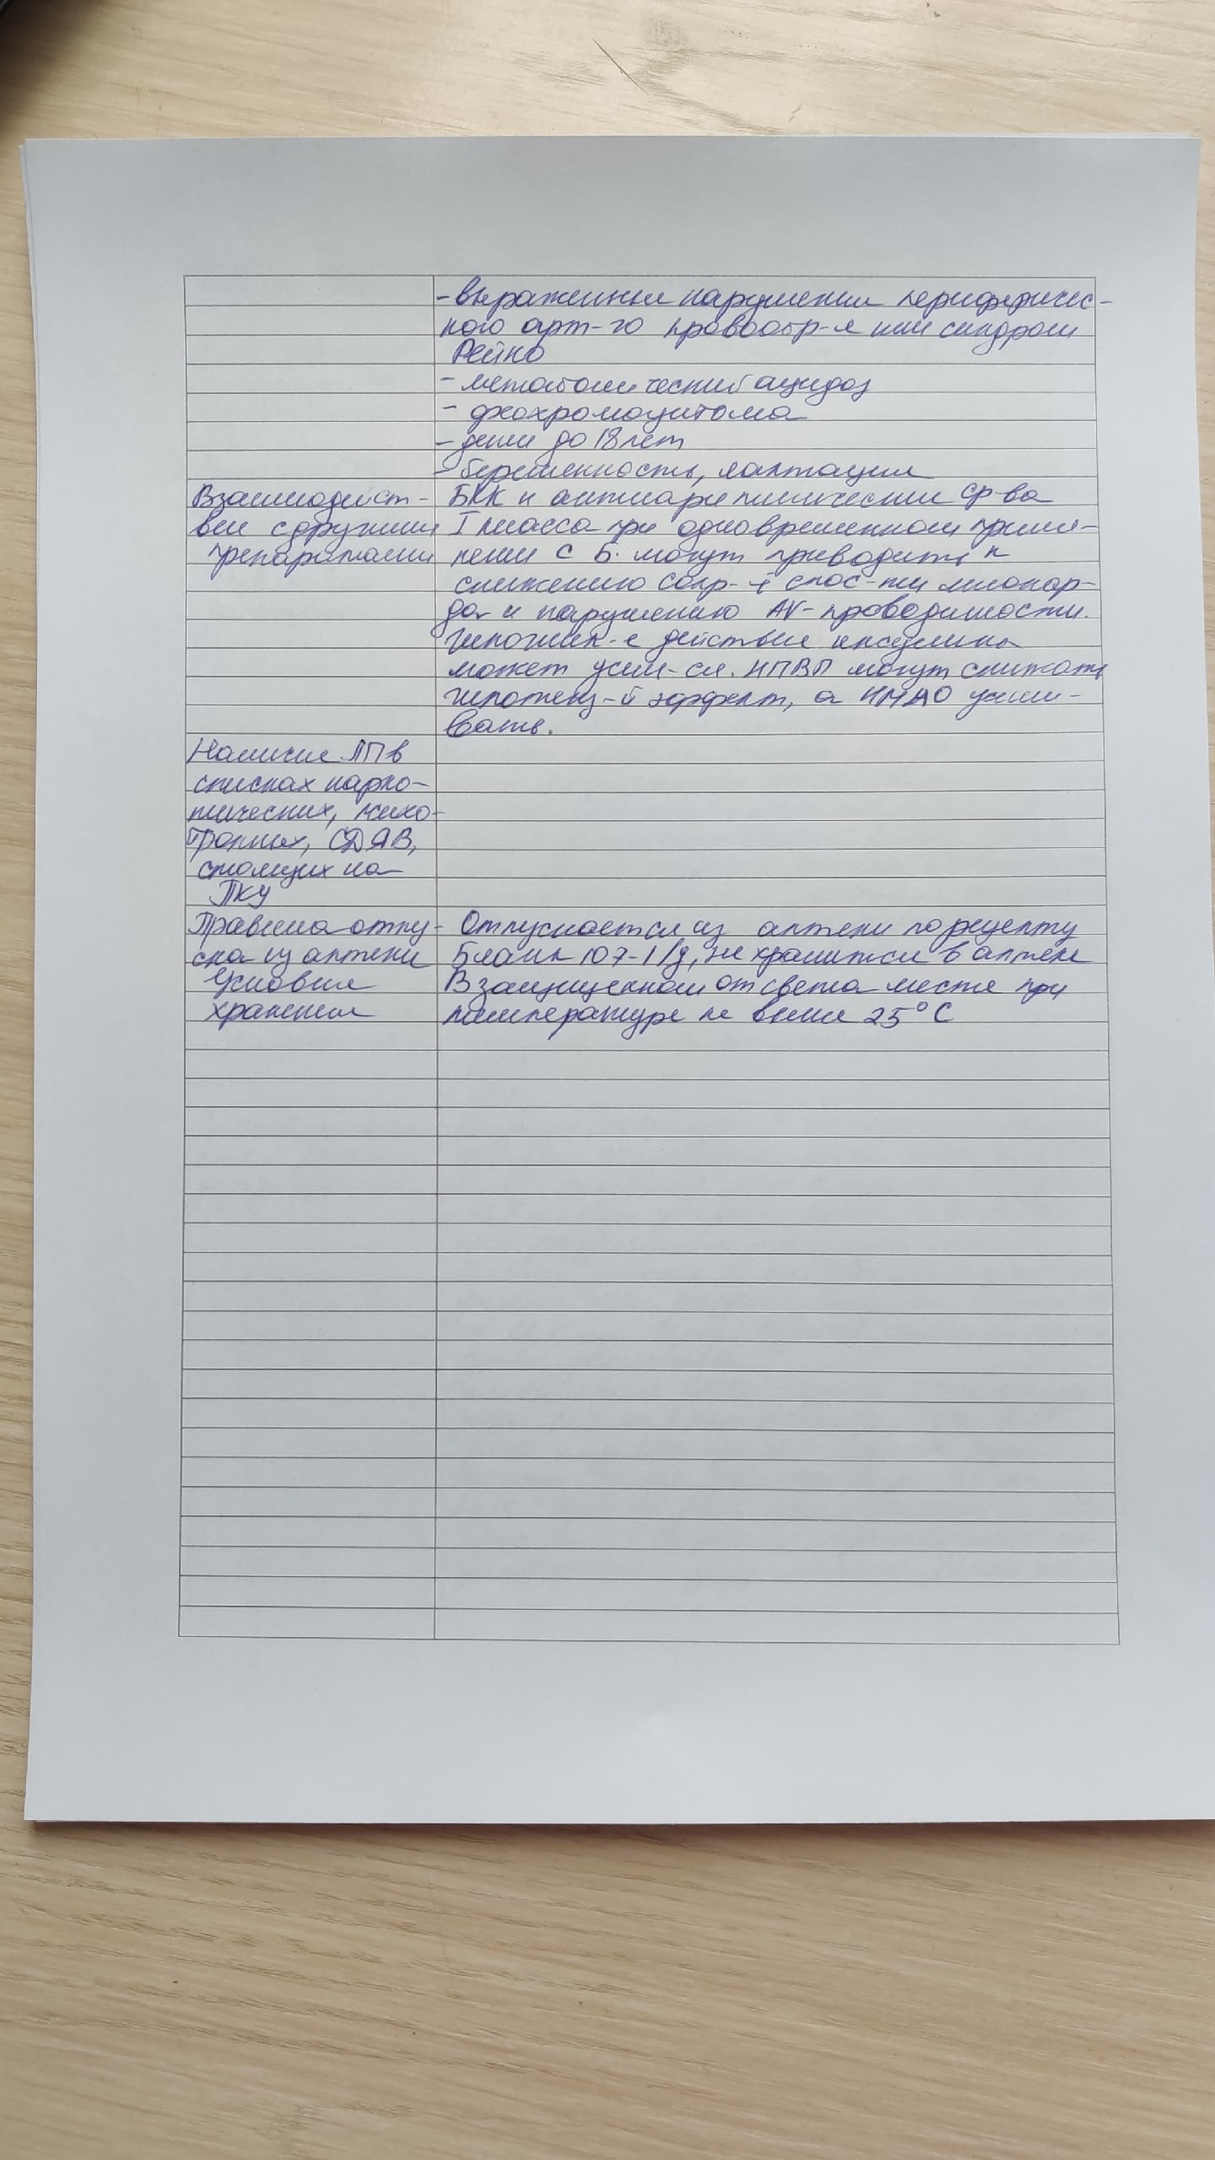 - выраженные нарушения периферичес-
кого арт-го кровообр-я или синдром
Рейно
- метаболический ацидоз
- феохромоцитома
- дети до 18 лет
- беременность, лактация
Взаимодейст-
вие с другими
препаратами
БКК и антиаритмические ср-ва
I класса при одновременном приме-
нении с Б. могут приводить к
снижению сокр-й спос-ти миокар-
да и нарушению AV-проводимости.
Гипоглик-е действие инсулина
может усил-ся. НПВП могут снижать
гипотенз-й эффект, а ИМАО усили-
вать.
Наличие ЛП в
списках нарко-
тических, психо-
тропных, СДЯВ,
стоящих на
ПКУ
Правила отпу-
ска из аптеки
Отпускается из аптеки по рецепту
Бланк 107-1/у, не хранится в аптеке
Условия
хранения
В защищенном от света месте при
температуре не выше 25°C